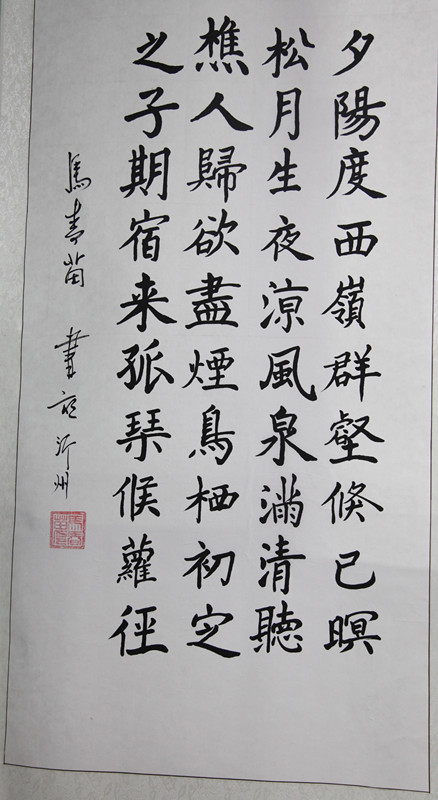 夕陽度西嶺群壑倏已暝
松月生夜涼風泉滿清聽
樵人歸欲盡煙鳥栖初定
之子期宿来孤琴候蘿径
馬青苗 書於沂州